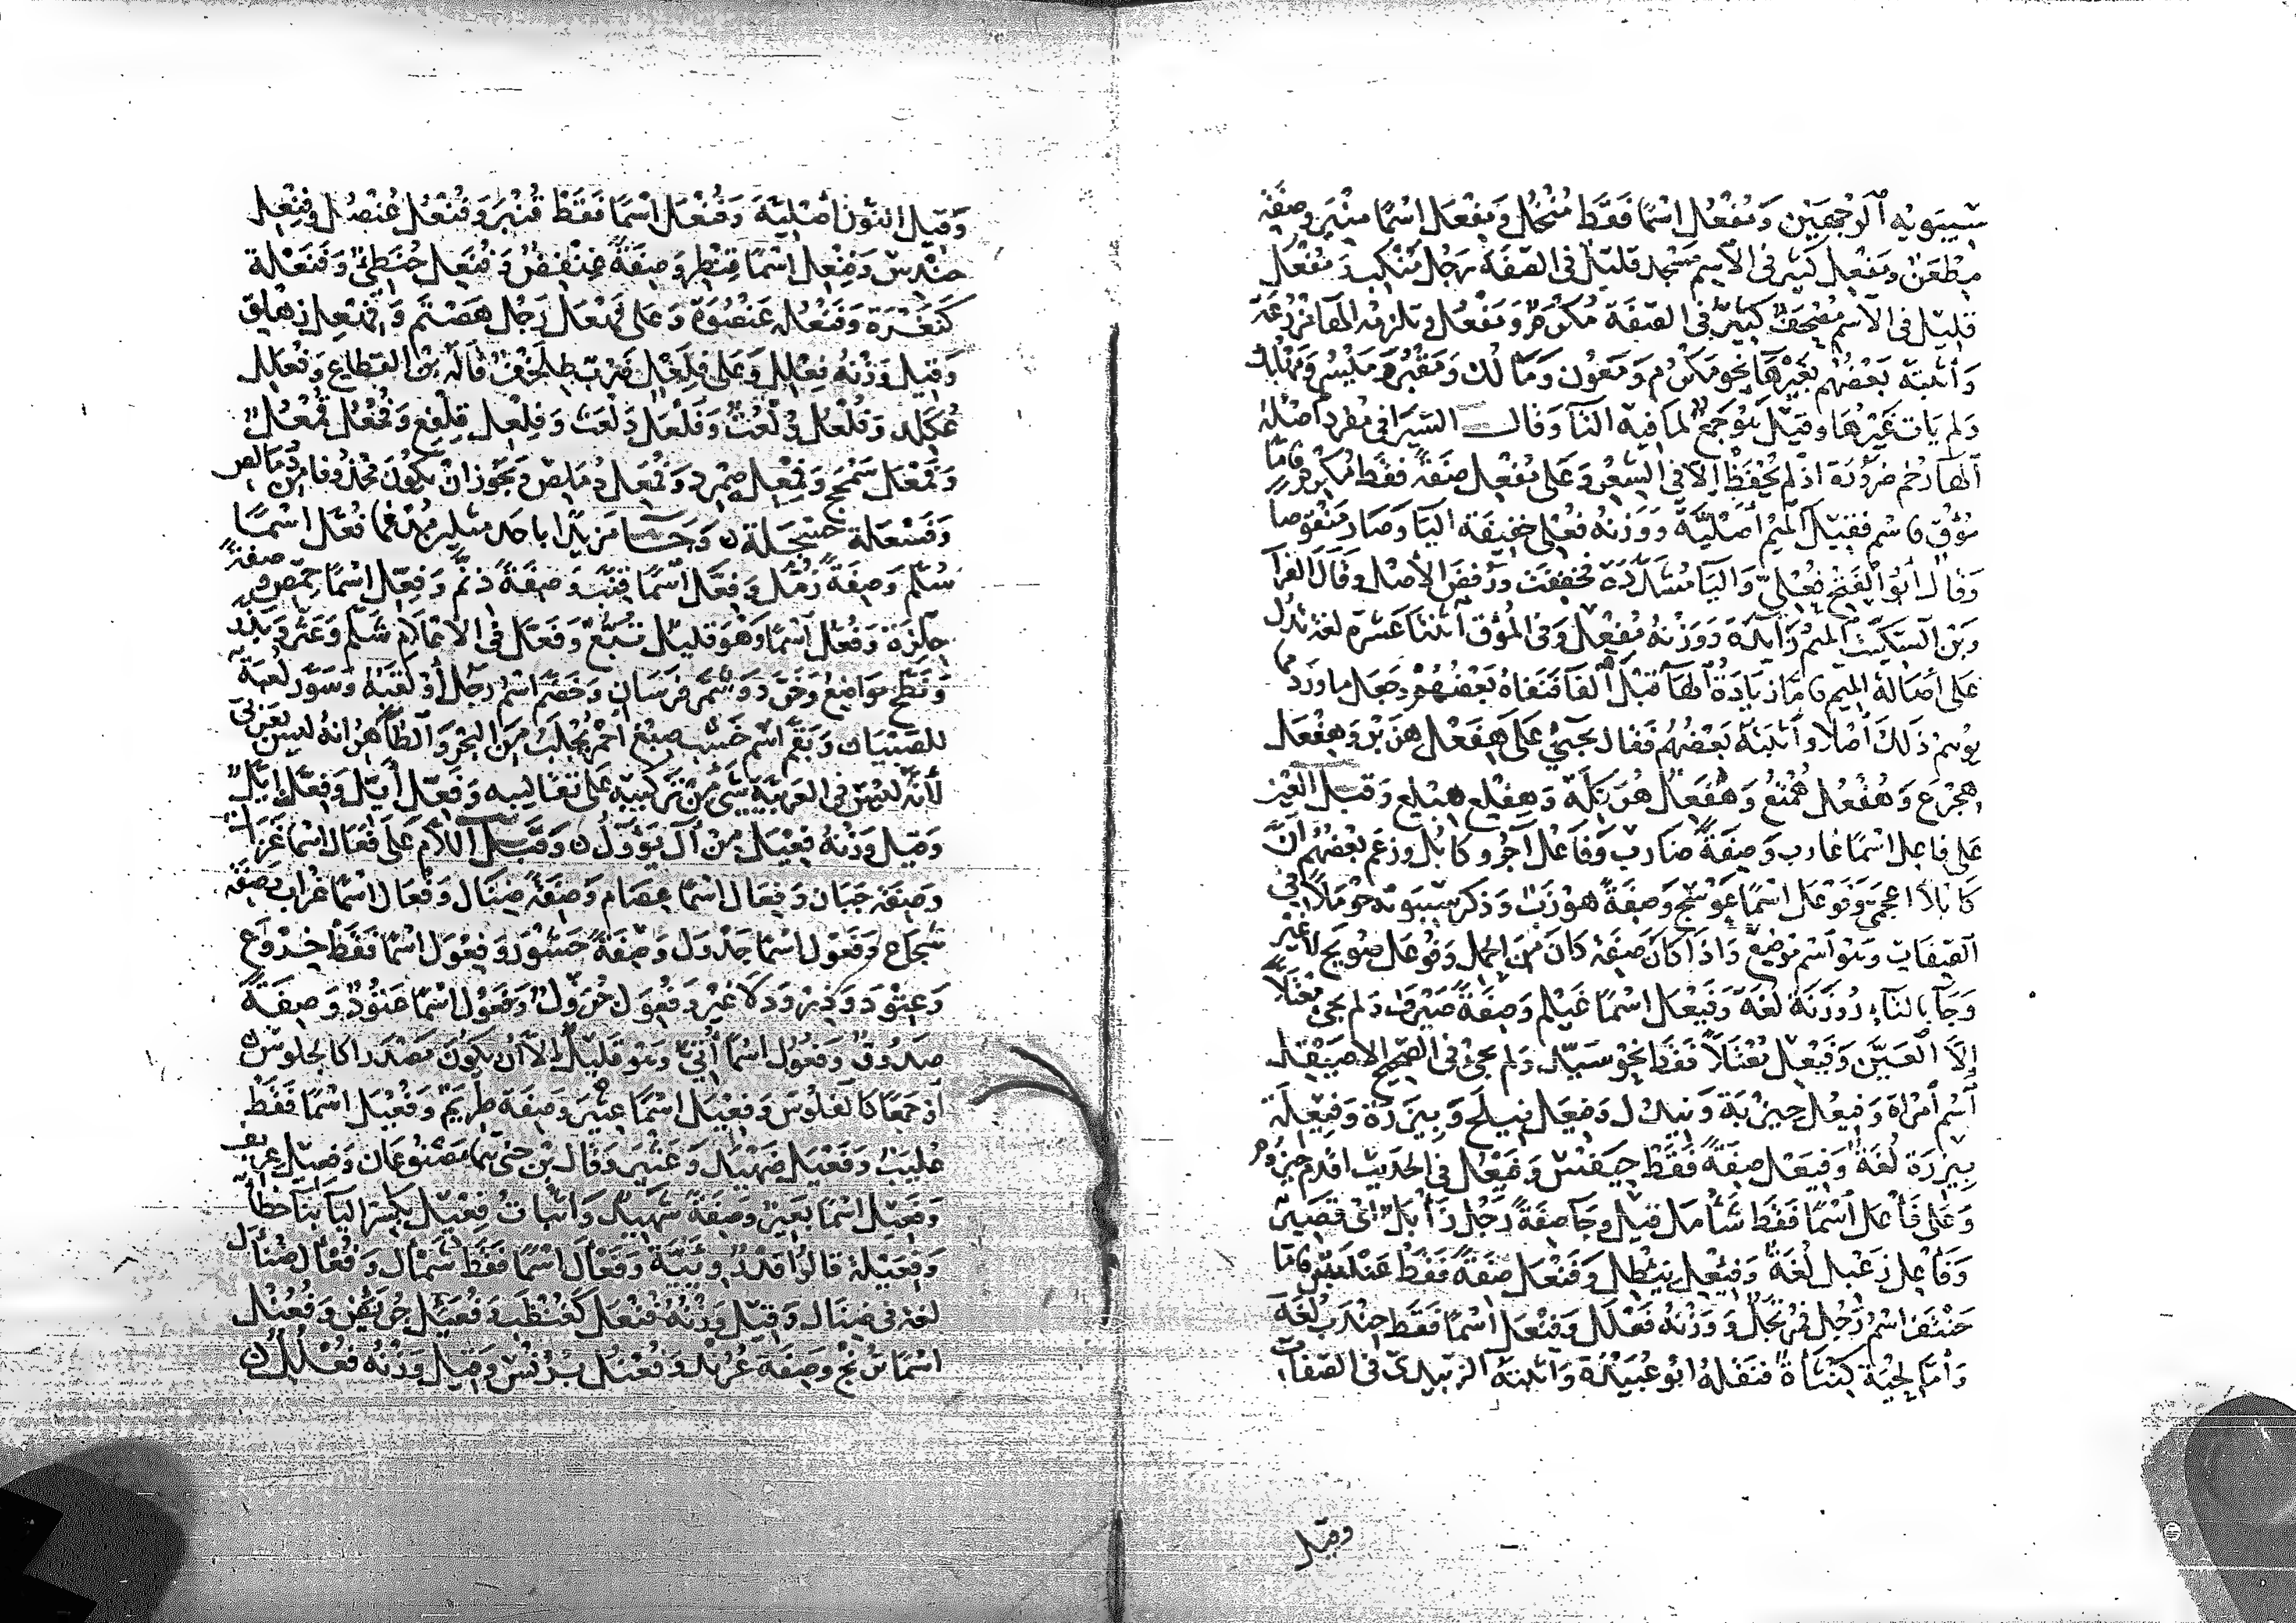 سيبويه الوجهين ومُفْعُل اسما فقط مُنْخُل ومِفْعَل اسما منبر وصفة
مِطْعَن ومَفْعِل كثير في الاسم مسجد قليل في الصفة رجل مَنْكِب ومُفْعَل
قليل في الاسم مُصْحَف كثير في الصفة مُكْرَم ومَفْعُل وتلزمه الهاء مَزْرُعَة
وأثبته بعضهم بغيرها نحو مَكْرُم ومَعُون ومَأْلُك ومَقْبُر ومَيْسُر ومَهْلُك
ولم يات غيرها وقيل هو جمع لما فيه التا وقال السيرافي مفرد أصله
الهاء رخم ضرورة اذ لم يحفظ إلا في الشعر وعلى مُفْعِل صفة فقط مُكْرِم فأما
مُؤْقٍ فاسم فقيل الميم أصلية ووزنه فُعْلِي خفيفة اليا وصار منقوصا
وقال أبو الفتح فُعْلِيّ واليا مشددة فخففت ورفض الأصل وقال الفرا
وبن السكيت الميم زايدة ووزنه مُفْعِل وفي المؤق اثنتا عشرة لغة تدل
على أصالة الميم فأما زيادة الها قبل الفا فنفاه بعضهم وجعل ما ورد مما
يوهم ذلك أصلا وأثبته بعضهم فقال يجيئ على هِفَعْل هِزَبْر وهِفْعَل
هِجْرَع وهُفْعُل هُمْتُع وهِفَعْل هِرَكْلَة وهِفْلِع هِبْلِع وقبل العين
على فاعل اسما غارب وصفة ضارب وفاعُل آجُر وكابُل وزعم بعضهم أن
كابلا اعجمي وفَوْعَل اسما عوسج وصفة هوزب وذكر سيبويه حوملا في
الصفات وهو اسم موضع واذا كان صفة كان من الحمل وفُوعَل صوبج لا غير
وجآ بالتاء زوزنة لغة وفَيْعَل اسما غَيْلَم وصفة صَيْرَف ولم يجئ معتلا
إلا العَيَّن وفَيْعِل معتلا فقط نحو سيد ولم يجئ في الصحيح الا صَيْقِل
اسم أمرأة وفَيْعُل حيزبة وفِيعَل فيلح وبيزرة وفِيعَلَة
بيزرة لغة وفِيَعْل صفة فقط حِيَفْس وفَيْعُل في الحديث اقدم حيزوم
وعلى فَأْعَل اسما فقط شأمل قيل وجآ صفة رجل زأبل اي قصير
وفَأْعِل زعبل لغة وفِئْعِل نئطل وفَنْعَل صفة فقط عنبس فأما
حَنْتَف اسم رجل فمرتجل ووزنه فَعْلَل وفِنْعَل اسما فقط جندب لغة
وأما لحية كِنْثَأَة فنقله ابو عبيدة وأثبته الزبيدي في الصفات
وقيل
وقيل النون أصلية وفُنْعَل اسما فقط قُنْبَر وفُنْعُل عُنْصُل وفِنْعِل
حندس وفِنَعْل اسما قنطر وصفة عنفص وفُنَعِل حُنَطِئ وفَنَعْلَة
كَنَعْرَة وفَنْعُلَة عَنْصُوَة وعلى فَهْعَل رجل هصتم وفِهْعِل زهلق
وقيل وزنه فِعْلِل وعلى فِلَعْل ضرب طِلَخْف قاله بن القطاع وفُعَلِل
عُكَلِد وفُلْعُل دُلْعُث وفَلَعْل دَلَعْث وفِلْعِل قِلْفِع وفُمْعُل قُمْعُل
وفَمْعَل سمحج وفِمْعِل صمرد وفُمَعِل دُمَلِص ويجوز ان يكون محذوفا من دمالص
وفَسْعَلَة حسجلة ن وجآ مزيدا باحد مثلين مدغما فُعَّل اسما
سُلَّم وصفة زُمَّل وفِعَّل اسما قِنَّب وصفة دِنَّم وفِعِّل اسما حِمِّص وصفة
حِلِّزَة وفُعُّل اسما وهو قليل تُبُّع وفَعَّل في الاعلام شَلَّم وعَثَّر وبَذَّر
ونَطَّح مواضع وخَوَّد وشَمَّر فرسان وخَضَّم اسم رجل أو لقبه وسَوَّر لعبة
للصبيان وبَقَّم اسم خشب صبغ أحمر يجلب من البحر والظاهر انه ليس بعربي
لأنه ليس في العربية شي من تركيبه على تقاليبه وفُعَّل أُيَّل وفِعَّل إِيَّل
وقيل وزنه فِعْيَل من آل يؤول ن وقبل اللام على فَعَال اسما غزال
وصفة جبان وفِعَال اسما عصام وصفة ضناك وفُعَال اسما غراب وصفة
شجاع وفَعْوَل اسما جدول وصفة حَشْوَر وفِعْوَل اسما فقط خِرْوَع
وعِتْوَد وذِرْوَد لا غير وفُعْوَل جُرْوَل وفَعُول اسما عتود وصفة
صدوق وفُعُول اسما أُتِيّ وهو قليل إلا أن يكون مصدرا كالجلوس
أو جمعا كالفلوس وفِعْيَل اسما عِثْيَر وصفة طِرْيَم وفُعْيَل اسما فقط
عُلْيَب وفَعْيَل ضَهْيَد وعَثْيَر وقال بن جني هما مصنوعان وقيل
وفَعِيل اسما بعير وصفة شهيد واثبات فِعْيِل بكسر اليا بنآ خطأ
وفِعْيَلَة قالوا وفَعْأَل اسما فقط شَمْأَل وفُعَال ضُناك
لغة في ضِناك وقيل وزنه فُنْعَل كعُنْظَب وفُعَئِل جُرَئِض وفُعْنُل
اسما تُرْنُج وصفة عُرُنْد وفُعْنُل بُرْنُس وقيل وزنه فُعْلُل ن